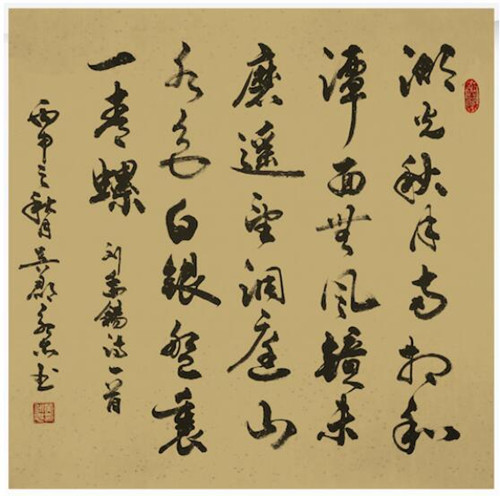 湖光秋月两相和
潭面無風鏡未
磨遥望洞庭山
水色白銀盤裏
一青螺
刘禹錫詩一首
丙申之秋月吴郡书